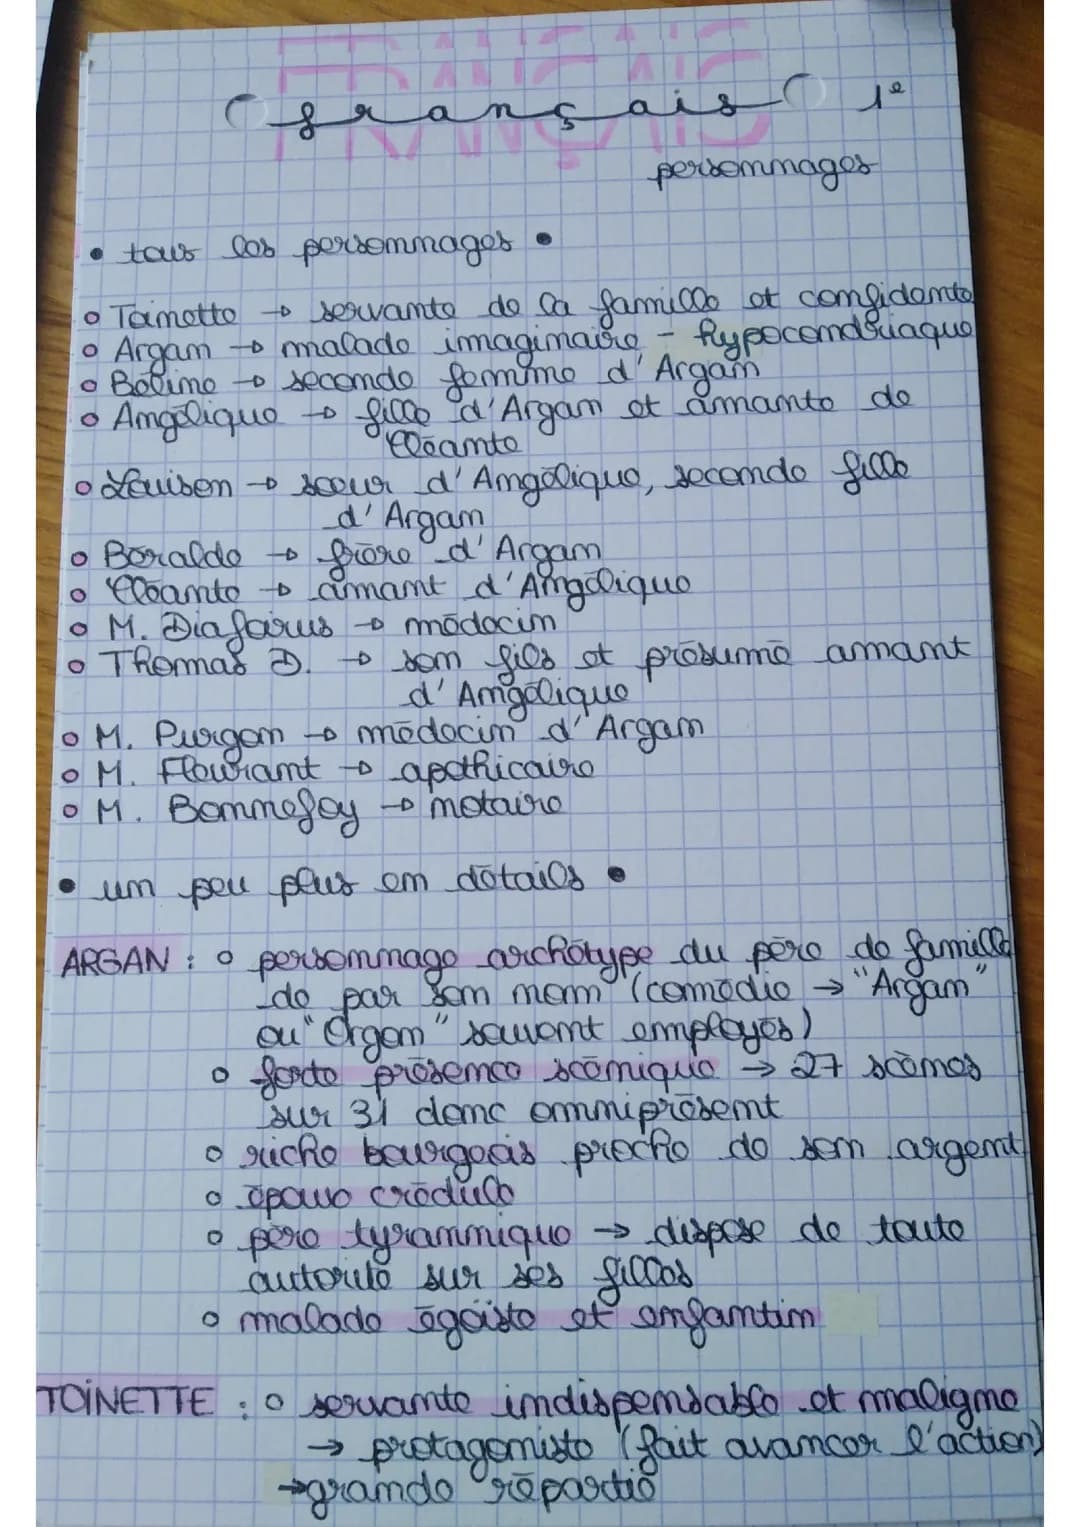 FRANÇAIS
français 1e
personnages
• tous les personnages •
Toinette → servante de la famille et confidente
Argan → malade imaginaire - hypocondriaque
Béline → seconde femme d'Argan
Angélique → fille d'Argan et amante de
Cléante
Louison → soeur d'Angélique, seconde fille
d'Argan
Béralde → frère d'Argan
Cléante → amant d'Angélique
M. Diafoirus → médecin
Thomas D. → son fils et présumé amant
d'Angélique
M. Purgon → médecin d'Argan
M. Fleurant → apothicaire
M. Bonnefoy → notaire
• un peu plus en détails •
ARGAN : o personnage archétype du père de famille
de par son nom (comédie → "Argan"
ou "Orgon" souvent employés)
o forte présence scénique → 27 scènes
sur 31 donc omniprésent
o riche bourgeois proche de son argent
o époux crédule
o père tyrannique → dispose de toute
autorité sur ses filles
o malade égoïste et enfantin
TOINETTE : o servante indispensable et maligne
→ protagoniste (fait avancer l'action)
→ grande répartie